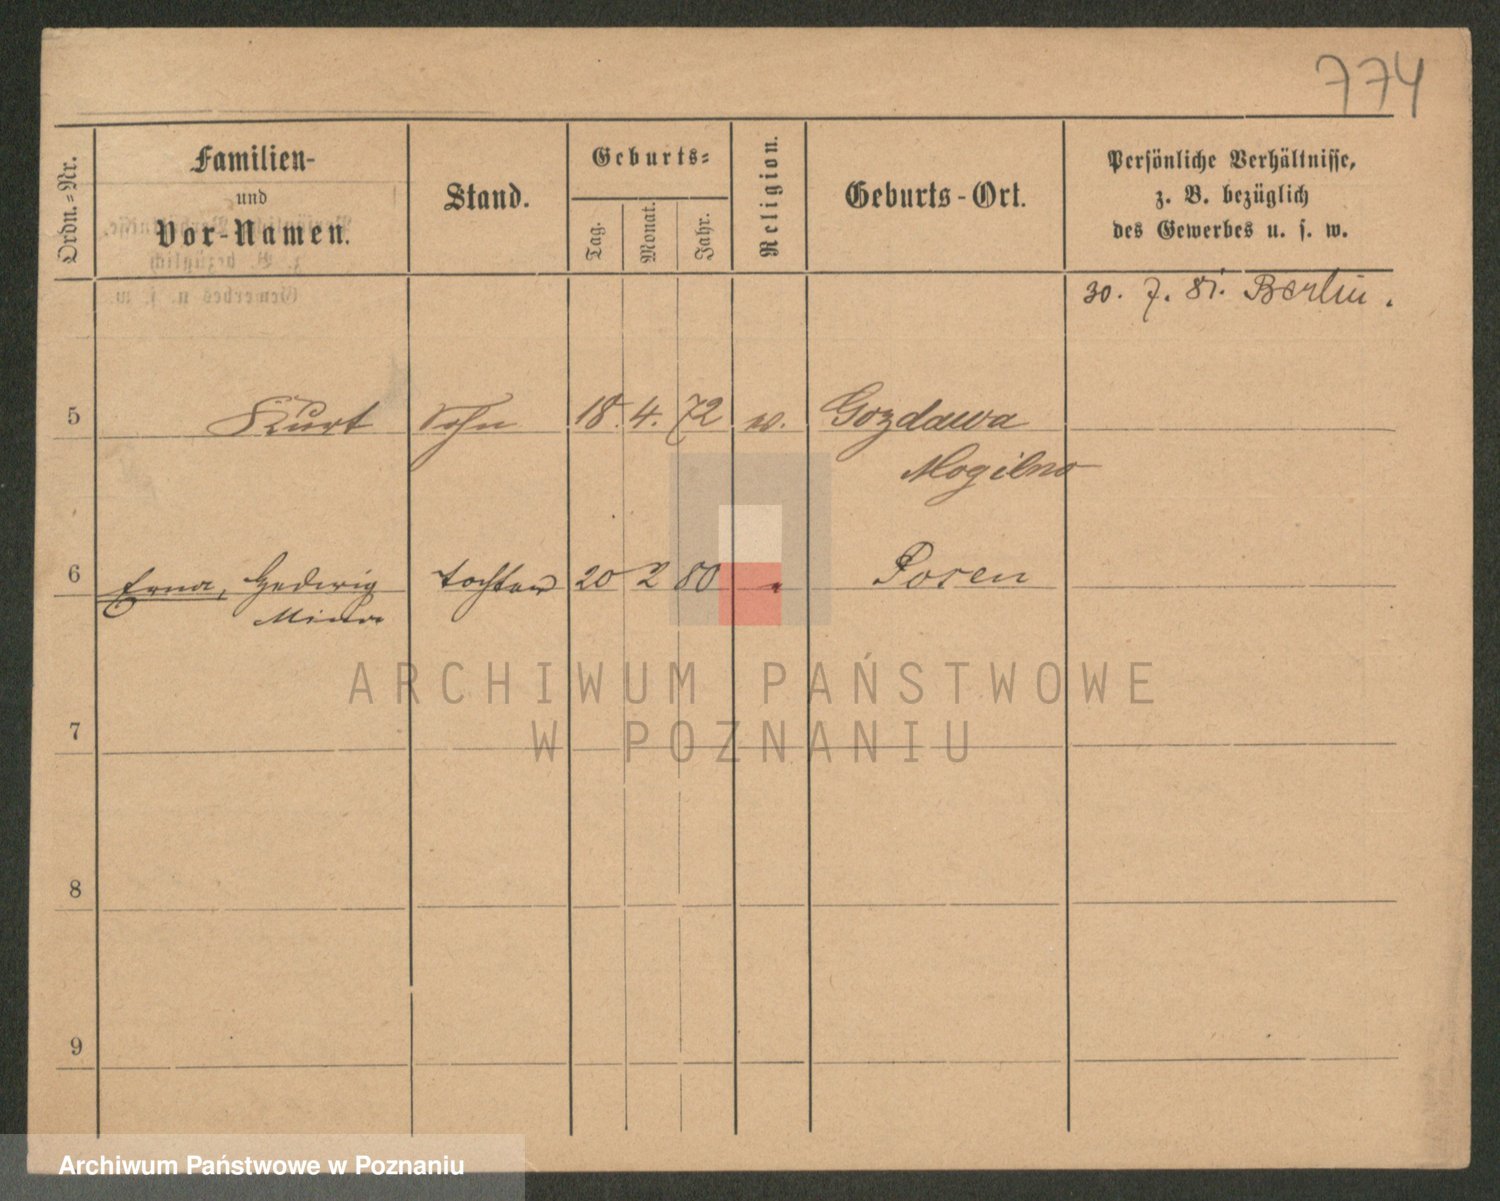 774
Ordn.=Nr.
Familien-
und
Vor-Namen.
Stand.
Geburts=
Tag.
Monat.
Jahr.
Religion.
Geburts-Ort.
Persönliche Verhältnisse,
z. B. bezüglich
des Gewerbes u. s. w.
30. 7. 81. Berlin.
5 Kurt Sohn 18. 4. 72 Gozdawa
Mogilno
6 Erna, Hedwig Tochter 20 2 80 " Posen
7
8
9
ARCHIWUM PAŃSTWOWE
W POZNANIU
Archiwum Państwowe w Poznaniu